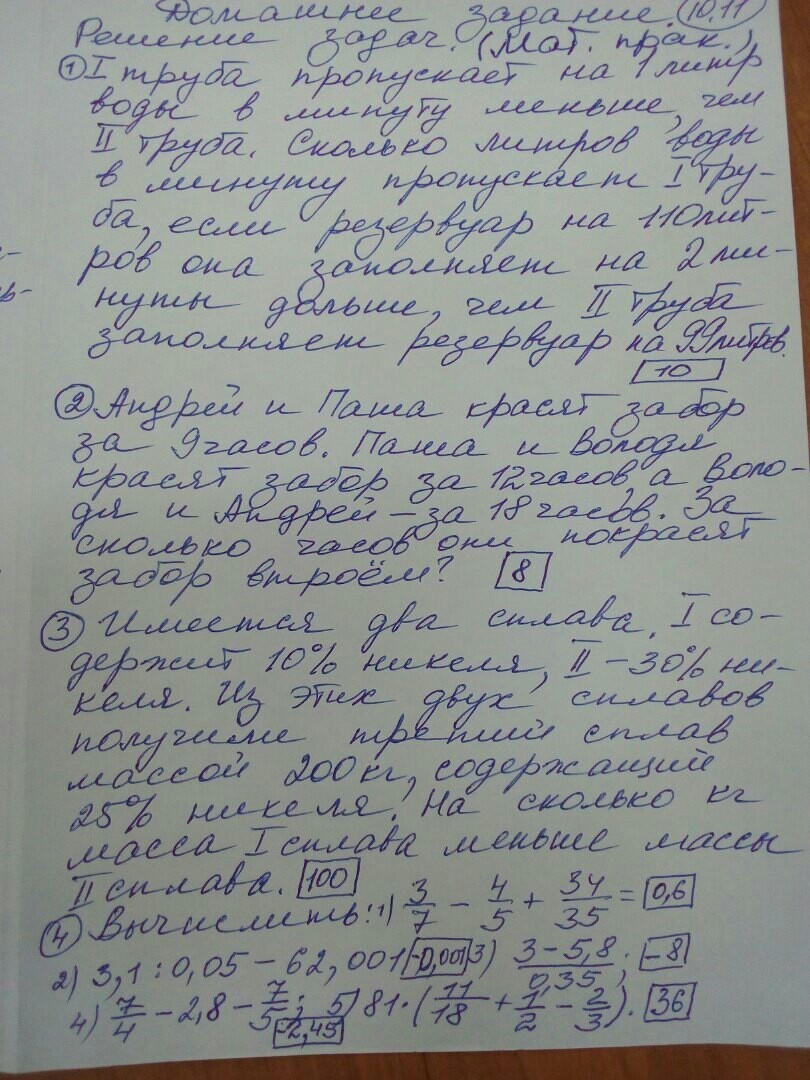 Домашнее задание. 10.11
Решение задач. (Мат. прак.)
① I труба пропускает на 1 литр
воды в минуту меньше, чем
II труба. Сколько литров воды
в минуту пропускает I тру-
ба, если резервуар на 110 лит-
ров она заполняет на 2 ми-
нуты дольше, чем II труба
заполняет резервуар на 99 литров.
10
② Андрей и Паша красят забор
за 9 часов. Паша и Володя
красят забор за 12 часов, а Воло-
дя и Андрей – за 18 часов. За
сколько часов они покрасят
забор втроём? 8
③ Имеется два сплава. I со-
держит 10% никеля, II – 30% ни-
келя. Из этих двух сплавов
получили третий сплав
массой 200 кг, содержащий
25% никеля. На сколько кг
масса I сплава меньше массы
II сплава. 100
④ Вычислить: 1) 3/7 - 4/5 + 34/35 = 0,6
2) 3,1 : 0,05 - 62,001 -0,001 3) (3-5,8)/0,35; -8
4) 7/4 - 2,8 - 7/5; 5) 81·(11/18 + 1/2 - 2/3). 36
-2,45